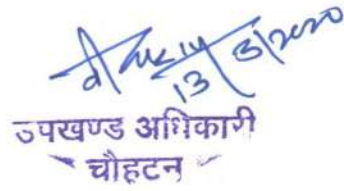 13/3/2020
उपखण्ड अधिकारी
चौहटन